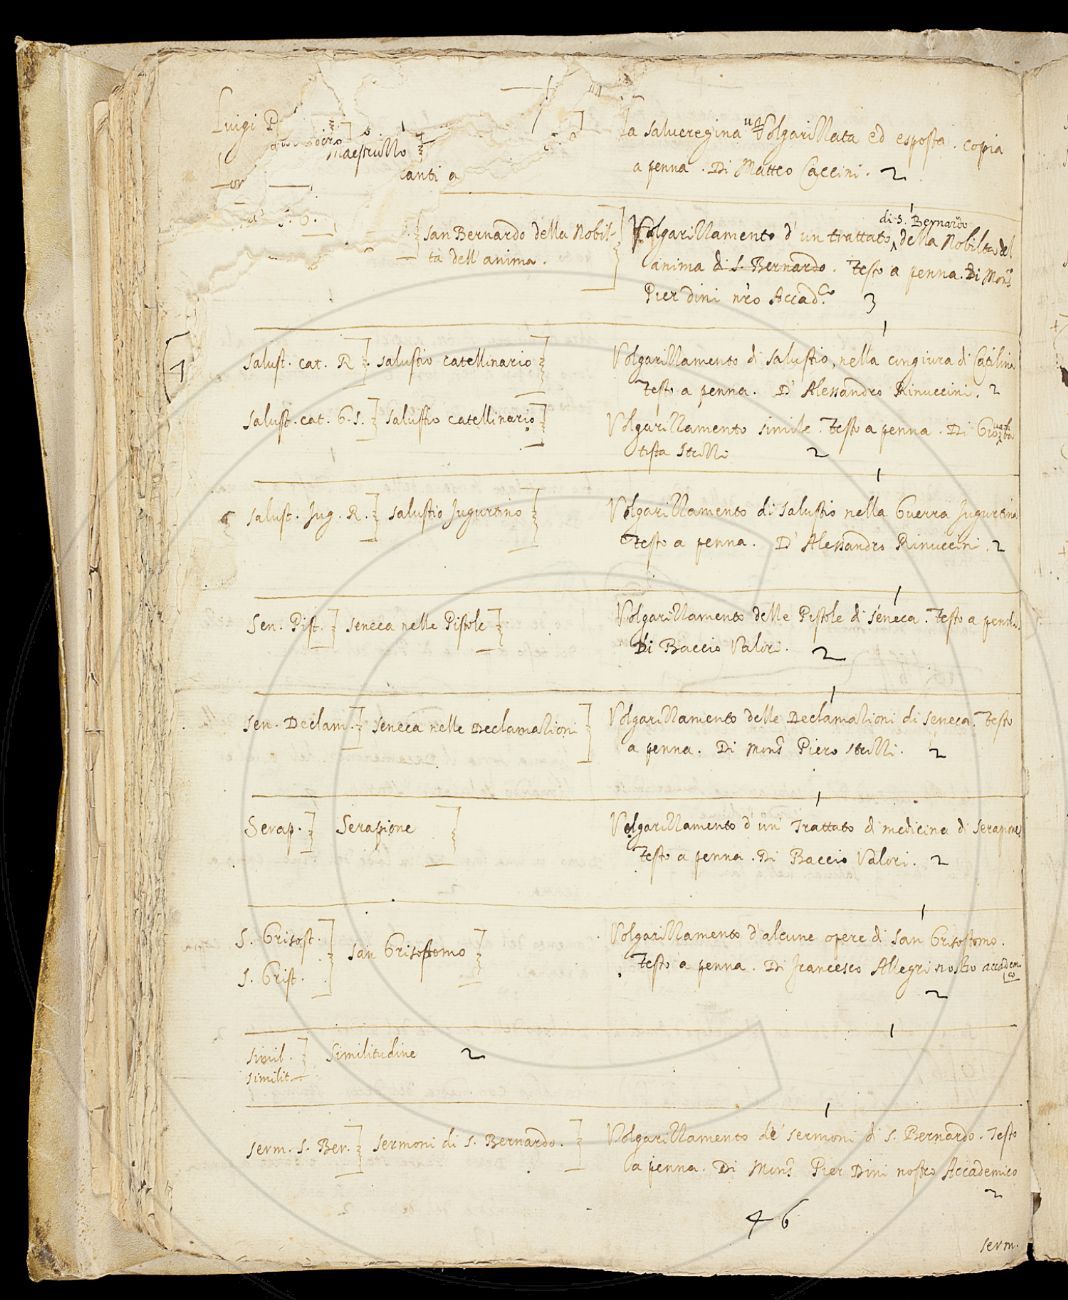 Luigi P
Maestruzzo
canti a
la salveregina Volgarizzata ed esposta. copia
a penna. Di Matteo Caccini. 2
San Bernardo della Nobil-
tà dell'anima.
di S. Bernardo
Volgarizzamento d'un trattato della Nobiltà del
anima di S. Bernardo. Testo a penna. Di Mons.
Pier Dini nro Accad.co 3
Salust. cat. R] Salustio catellinario]
Volgarizzamento di Salustio, nella congiura di Catilina
Testo a penna. D'Alessandro Rinuccini. 2
Salust. cat. G. S.] Salustio catellinario]
Volgarizzamento simile. Testo a penna. Di Giovanbatista
tista Strozzi 2
Salust. Jug. R.] Salustio Jugurtino]
Volgarizzamento di Salustio nella Guerra Jugurtina
Testo a penna. D'Alessandro Rinuccini. 2
Sen. Pist.] Seneca nelle Pistole]
Volgarizzamento delle Pistole di Seneca. Testo a penna.
Di Baccio Valori. 2
Sen. Declam.] Seneca nelle Declamazioni]
Volgarizzamento delle Declamazioni di Seneca. Testo
a penna. Di Mons. Piero Strozzi. 2
Serap.] Serapione]
Volgarizzamento d'un Trattato di medicina di Serapione
Testo a penna. Di Baccio Valori. 2
S. Grisost.
S. Grist.] San Grisostomo]
Volgarizzamento d'alcune opere di San Grisostomo.
Testo a penna. Di Francesco Allegri nostro accademico
2
simil.] Similitudine 2
similit.
serm. S. Ber.] sermoni di S. Bernardo.]
Volgarizzamento de' sermoni di S. Bernardo. Testo
a penna. Di Mons. Pier Dini nostro Accademico
2
46
serm.